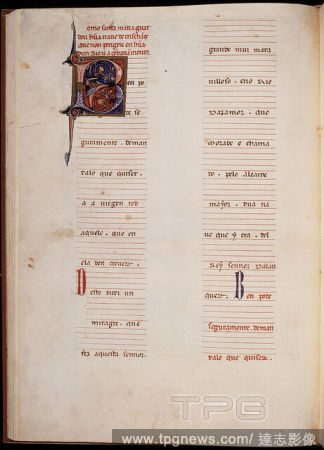 omo santa maria guar
dou hũa naue de
que non perigou en hũa
B en po
de se
guramente . deman
dalo que quiser .
a a uirgen tod
aquele . que en
ela ben creuer .
D esto un
miragre . que
fez aquesta sennor .
grande mui mara
uilloso . eno Rio
que
e chama
do . pelo alcaide
mayor . dũa na
ue que y era . del
Rey sennor dalan
quer . B en pode
seguramente . deman
dalo que quiser .
TPG
www.tpgnews.com / 達志影像